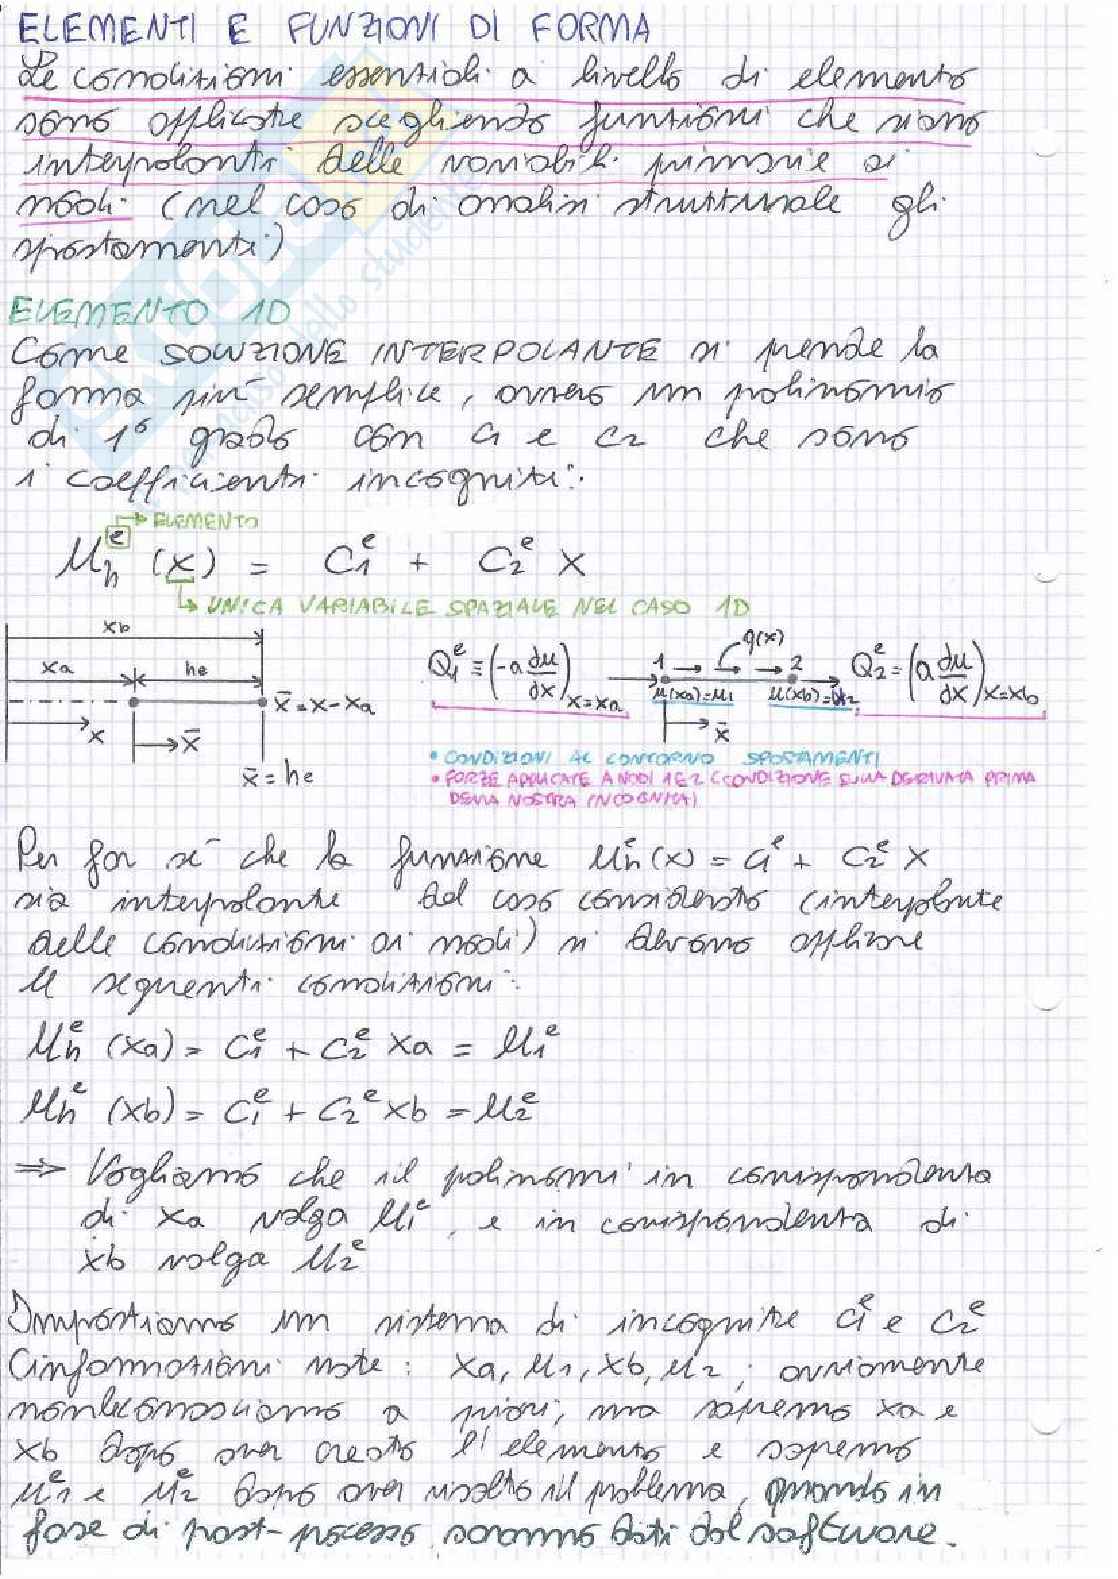 ELEMENTI E FUNZIONI DI FORMA
Le condizioni essenziali a livello di elemento
sono applicate scegliendo funzioni che siano
interpolanti delle variabili primarie ai
nodi (nel caso di analisi strutturale gli
spostamenti)
ELEMENTO 1D
Come SOLUZIONE INTERPOLANTE si prende la
forma più semplice, ovvero un polinomio
di 1° grado con c1 e c2 che sono
i coefficienti incogniti:
→ ELEMENTO
u_h^e (x) = C_1^e + C_2^e x
↳ UNICA VARIABILE SPAZIALE NEL CASO 1D
xb
xa he
x̄ = x - xa
x x̄
x̄ = he
Q_1^e ≡ (-a du/dx)_{x=xa} 1 q(x) 2 Q_2^e = (a du/dx)_{x=xb}
u(xa)=u1 u(xb)=u2
x̄
• CONDIZIONI AL CONTORNO SPOSTAMENTI
• FORZE APPLICATE A NODI 1 E 2 (CONDIZIONE SULLA DERIVATA PRIMA
DELLA NOSTRA INCOGNITA)
Per far sì che la funzione u_h^e(x) = c_1^e + C_2^e x
sia interpolante del caso considerato (interpolante
delle condizioni ai nodi) si devono applicare
le seguenti condizioni:
u_h^e (xa) = C_1^e + C_2^e xa = u_1^e
u_h^e (xb) = C_1^e + C_2^e xb = u_2^e
⇒ Vogliamo che il polinomi in corrispondenza
di xa valga u_1^e, e in corrispondenza di
xb valga u_2^e
Impostiamo un sistema di incognite c_1^e e c_2^e
(informazioni note: xa, u1, xb, u2; ovviamente
non le conosciamo a priori, ma sapremo xa e
xb dopo aver creato l'elemento e sapremo
u_1^e e u_2^e dopo aver risolto il problema, quando in
fase di post-processo saranno dati dal software.